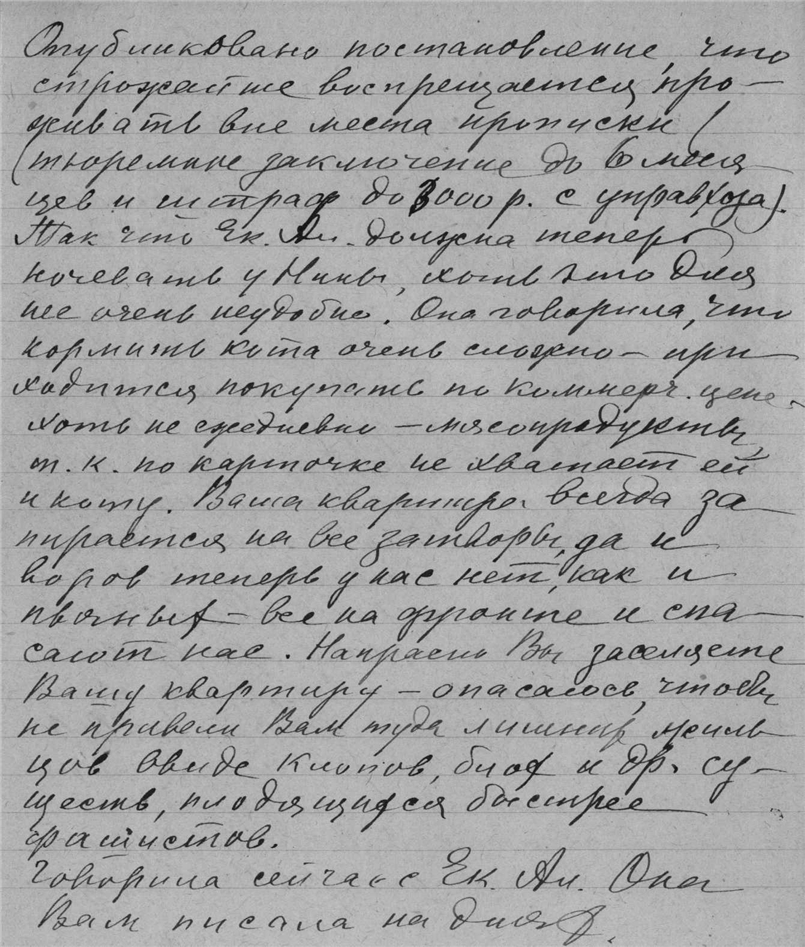 Опубликовано постановление, что
строжайше воспрещается про-
живать вне места прописки
(тюремное заключение до 6 меся
цев и штраф до 3000 р. с управхоза).
Так что Ек. Ал. должна теперь
ночевать у Нины, хоть это для
нее очень неудобно. Она говорила, что
кормить кота очень сложно – при
ходится покупать по коммерч. цене –
хоть не ежедневно – мясопродукты,
т. к. по карточке не хватает ей
и коту. Ваша квартира всегда за
пирается на все затворы, да и
воров теперь у нас нет, как и
пьяных – все на фронте и спа-
сают нас. Напрасно Вы заселяете
Вашу квартиру – опасаюсь, чтобы
не привели Вам туда лишних жиль
цов ввиде клопов, блох и др. су-
ществ, плодящихся быстрее
фашистов.
Говорила сейчас с Ек. Ал. Она
Вам писала на днях.